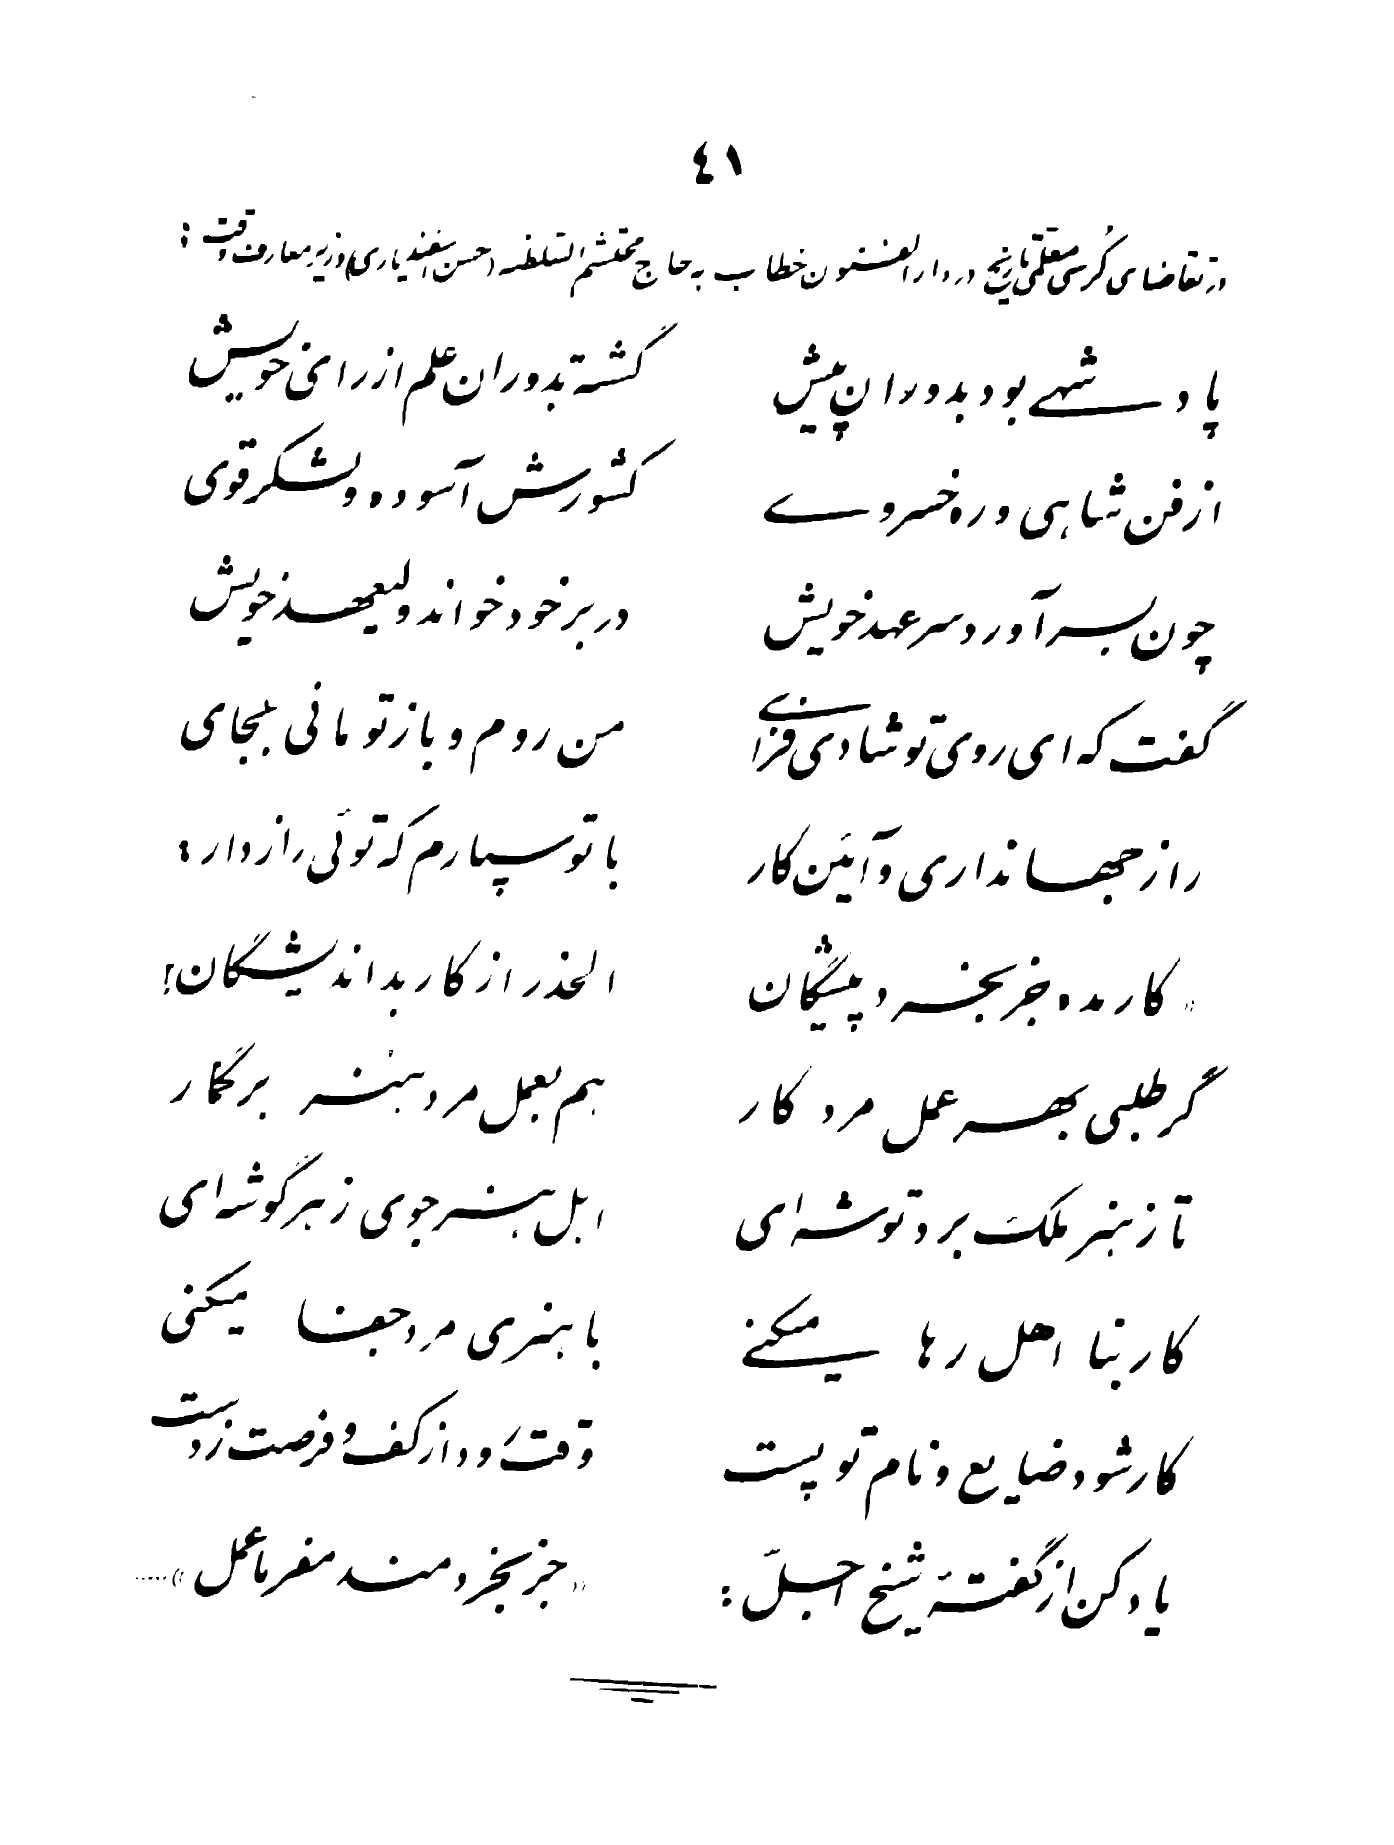 ٤١
در تقاضای کرسی معلمی تاریخ در دارالفنون خطاب به حاج محتشم السلطنه (حسن اسفندیاری) وزیر معارف وقت :
پادشهے بود بدوران پیش گشته بدوران علم از رای خویش
از فن شاهی و ره خسروے کشورش آسوده و لشکر قوی
چون بسر آورد سر عهد خویش در بر خود خواند ولیعهد خویش
گفت که ای روی تو شادی فزای من روم و باز تو مانی بجای
راز جهانداری و آئین کار با تو سپارم که توئی رازدار :
« کار مده جز بخرد پیشگان الحذر از کار بداندیشگان!
گر طلبی بهر عمل مرد کار هم بعمل مرد هنر برگمار
تا ز هنر ملک برد توشه‌ای اهل هنر جوی ز هر گوشه‌ای
کار بنا اهل رها میکنے با هنری مرد جفا میکنی
کار شود ضایع و نام تو پست وقت رود از کف و فرصت ز دست
یاد کن از گفتهٔ شیخ اجلّ : « جز بخردمند مفرما عمل » .....